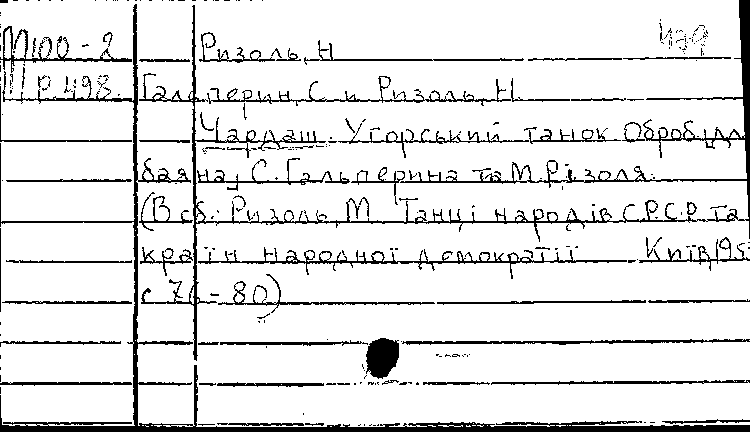 М100-2 Ризоль, Н 479
Р.498. Гальперин, С и Ризоль, Н.
Чардаш. Угорський танок Обробц дл
баяна С. Гальперина та М. Різоля.
(В сб.: Ризоль, М. Танці народів С.Р.С.Р та
країн народної демократії Київ, 195
с 76-80)